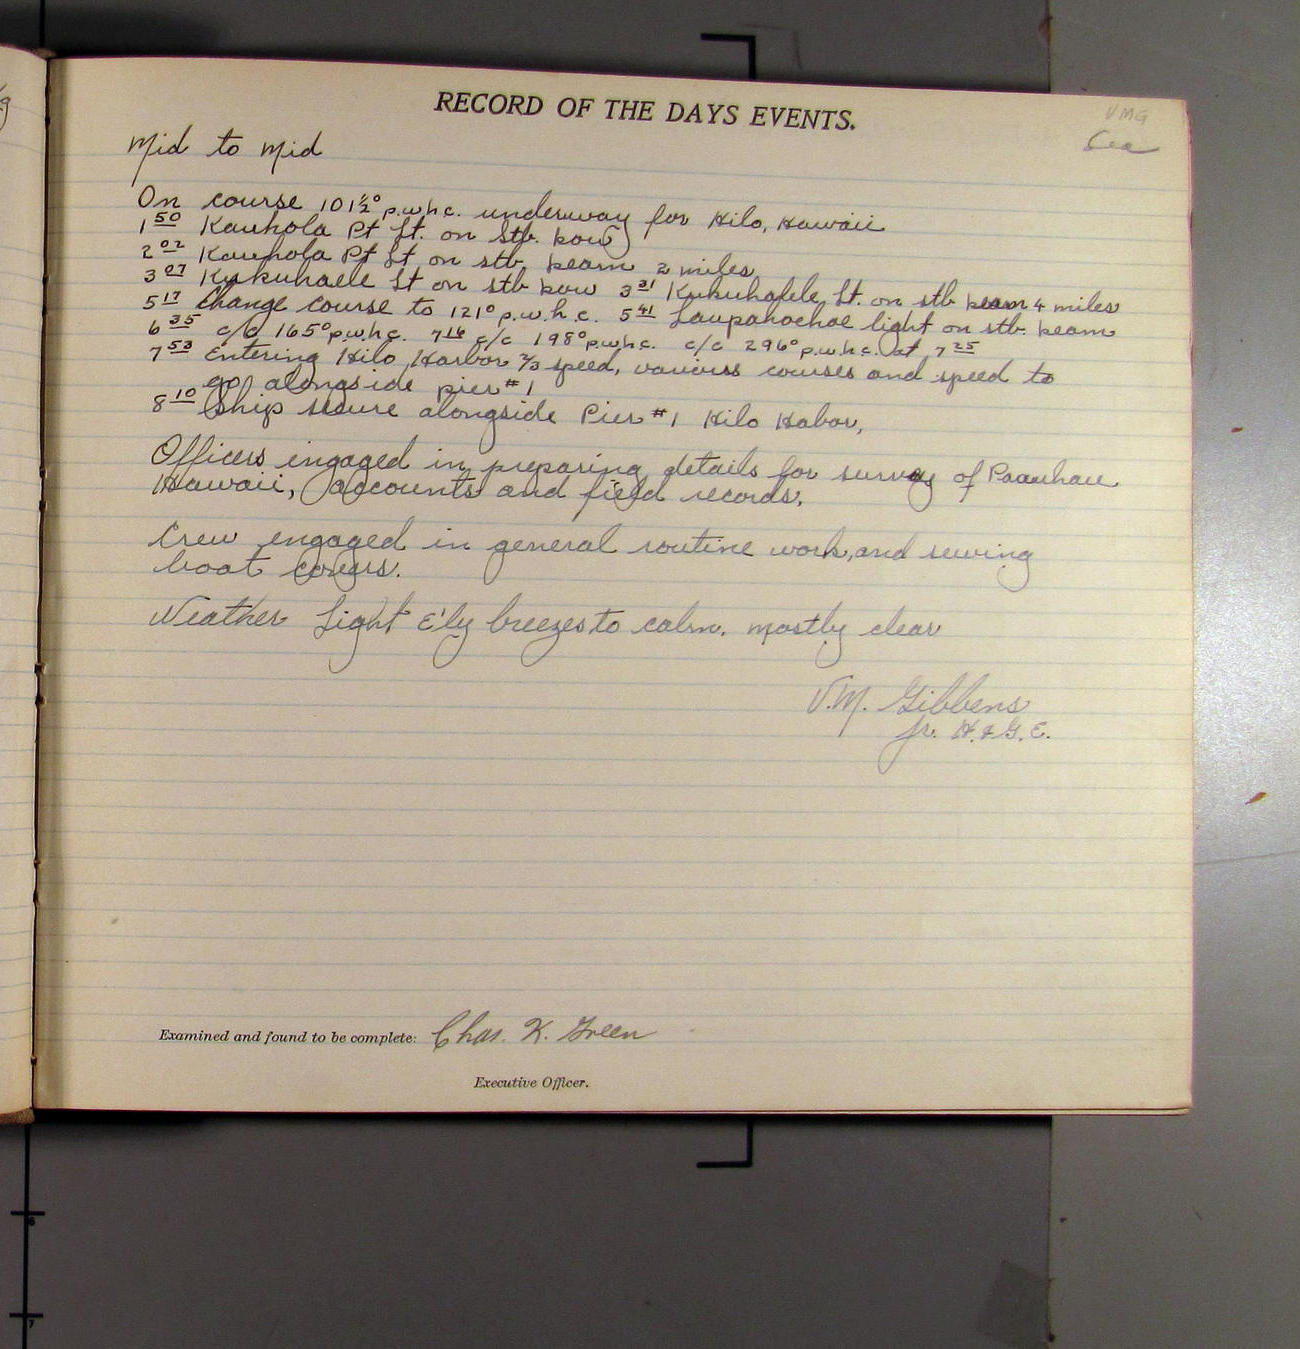 RECORD OF THE DAYS EVENTS.
VMG
Mid to Mid
On course 101½° p.w.h.c. underway for Hilo, Hawaii
1 50 Kauhola Pt Lt. on Stb. bow
2 02 Kauhola Pt Lt on stb. beam 2 miles
3 07 Kukuhaele Lt on stb bow 3 31 Kukuhafele Lt. on stb beam 4 miles
5 17 Change course to 121° p.w.h.c. 5 41 Laupahochoe light on stb. beam
6 35 c/c 165° p.w.h.c. 7 16 c/c 198° p.w.h.c. c/c 296° p.w.h.c. at 7 25
7 53 Entering Hilo Harbor ⅔ speed, various courses and speed to
go alongside pier #1
8 10 Ship secure alongside Pier #1 Hilo Habor,
Officers engaged in preparing details for survey of Paauhau
Hawaii, accounts and field records.
Crew engaged in general routine work, and sewing
boat covers.
Weather Light E'ly breezes to calm. mostly clear
V.M. Gibbens
Jr. H. & G. E.
Examined and found to be complete: Chas. K. Green
Executive Officer.
6
7